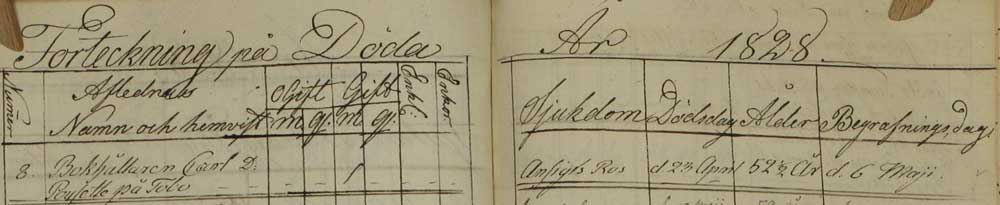 Förteckning på Döda År 1828.
Numer Aflednas Ogift Gift Enkl: Enkor Sjukdom Dödsdag Ålder Begrafnings dag.
Namn och hemvist m. q. m q:
8. Bokhållaren Carl D. 1 Ansigts Ros d 23 April 52½ År d. 6 Maji.
på Tobo